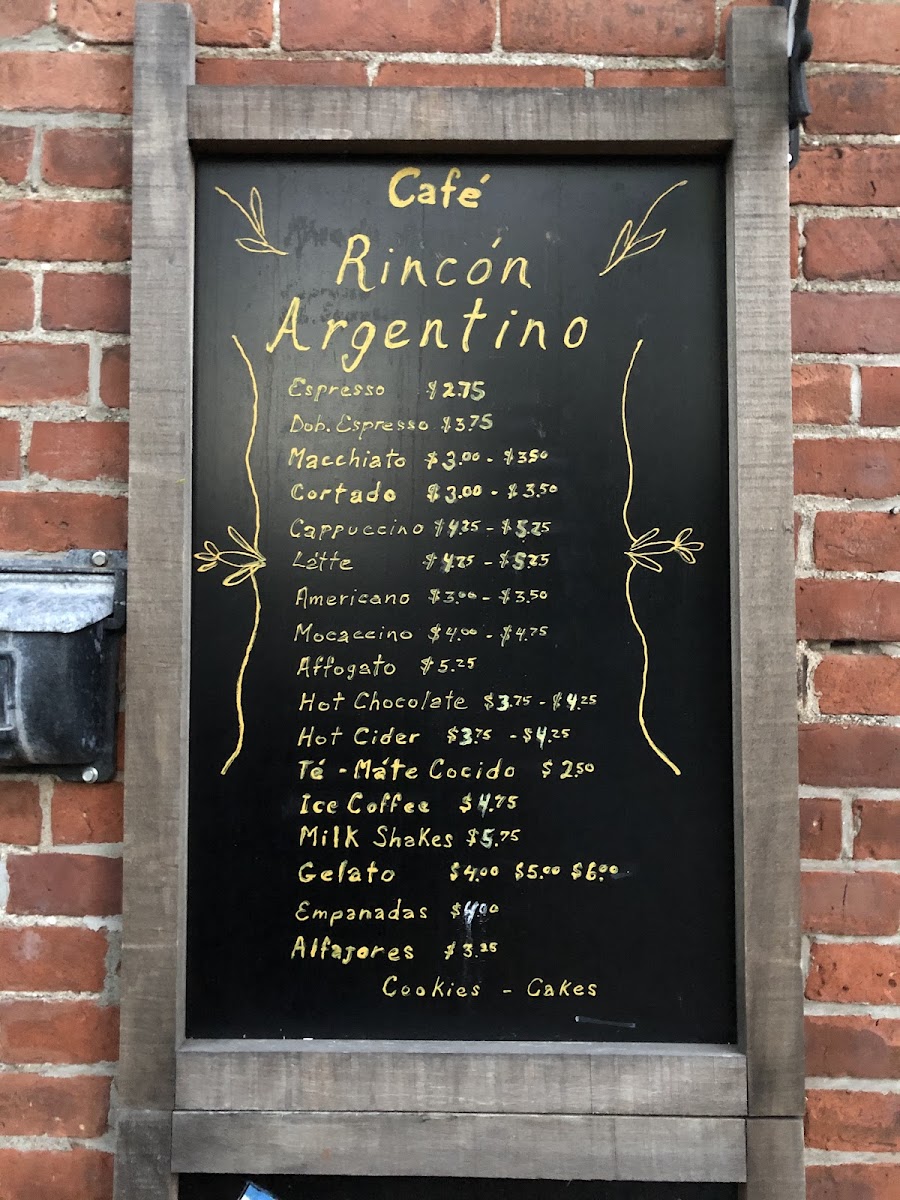 Café
Rincón
Argentino
Espresso $2.75
Dob. Espresso $3.75
Macchiato $3.00 - $3.50
Cortado $3.00 - $3.50
Cappuccino $4.25 - $5.25
Látte $4.25 - $5.25
Americano $3.00 - $3.50
Mocaccino $4.00 - $4.75
Affogato $5.25
Hot Chocolate $3.75 - $4.25
Hot Cider $3.75 - $4.25
Té - Máte Cocido $2.50
Ice Coffee $4.75
Milk Shakes $5.75
Gelato $4.00 $5.00 $6.00
Empanadas $4.00
Alfajores $3.25
Cookies - Cakes